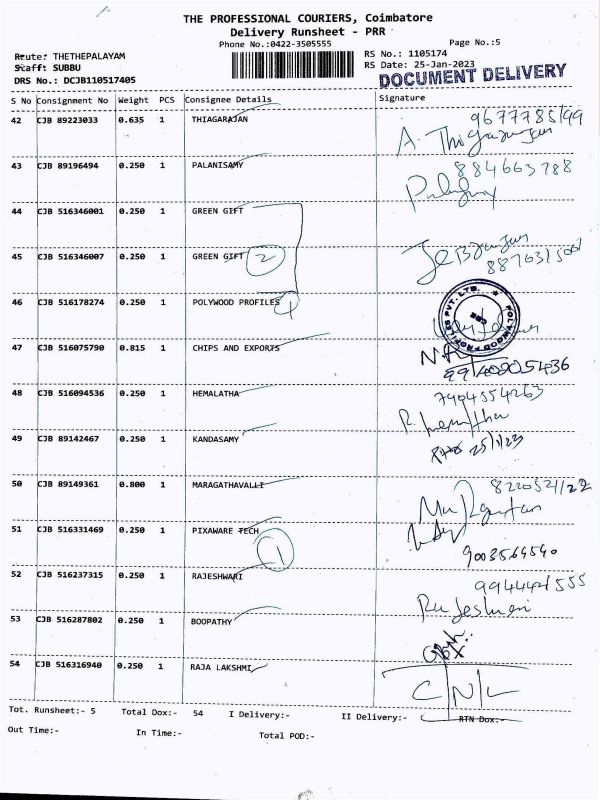 THE PROFESSIONAL COURIERS, Coimbatore
Delivery Runsheet - PRR
Phone No.:0422-3505555
Page No.:5
Route: THETHEPALAYAM
RS No.: 1105174
Staff: SUBBU
RS Date: 25-Jan-2023
DRS No.: DCJB110517405
DOCUMENT DELIVERY
S No Consignment No Weight PCS Consignee Details Signature
42 CJB 89223033 0.635 1 THIAGARAJAN
A. Thiagarajan
43 CJB 89196494 0.250 1 PALANISAMY 884663788
44 CJB 516346001 0.250 1 GREEN GIFT
45 CJB 516346007 0.250 1 GREEN GIFT 2
46 CJB 516178274 0.250 1 POLYWOOD PROFILES 4
POLYWOOD PROFILES PVT. LTD. ★ CBE
47 CJB 516075790 0.815 1 CHIPS AND EXPORTS
48 CJB 516094536 0.250 1 HEMALATHA 7904554263
49 CJB 89142467 0.250 1 KANDASAMY 25/1/23
50 CJB 89149361 0.800 1 MARAGATHAVALLI
51 CJB 516331469 0.250 1 PIXAWARE TECH 1
9003564540
52 CJB 516237315 0.250 1 RAJESHWARI
53 CJB 516287802 0.250 1 BOOPATHY
54 CJB 516316940 0.250 1 RAJA LAKSHMI
C/N/L
Tot. Runsheet:- 5 Total Dox:- 54 I Delivery:- II Delivery:- RTN Dox:-
Out Time:- In Time:- Total POD:-